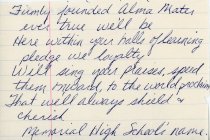 Firmly founded Alma Mater
ever true we'll be
Here within your halls of learning
pledge we loyalty
We'll sing your praises, speed
them onward, to the world proclaim
That we'll always shield &
cherish
Memorial High School's name.